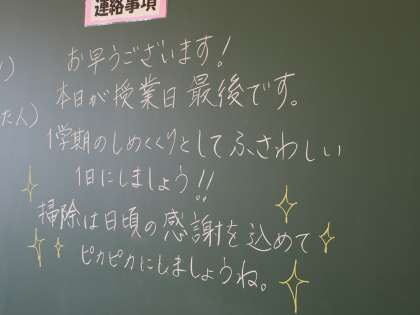 連絡事項
)
お早うございます!
本日が授業日最後です。
た人)
1学期のしめくくりとしてふさわしい
1日にしましょう!!
掃除は日頃の感謝を込めて
ピカピカにしましょうね。